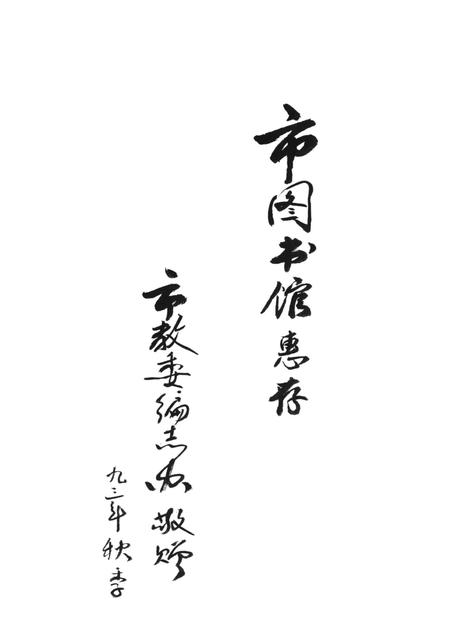 市图书馆惠存
市教委编志办敬赠
九三年秋季